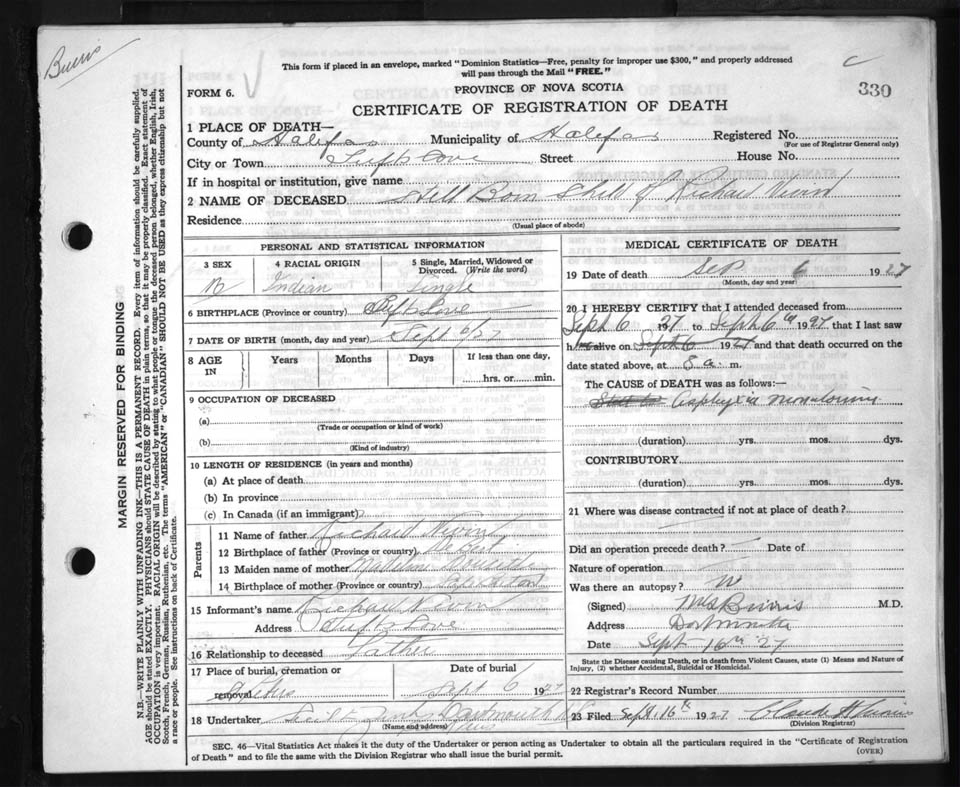 Burris
This form if placed in an envelope, marked "Dominion Statistics—Free, penalty for improper use $300," and properly addressed
will pass through the Mail "FREE."
C
330
FORM 6.
PROVINCE OF NOVA SCOTIA
CERTIFICATE OF REGISTRATION OF DEATH
MARGIN RESERVED FOR BINDING
N.B.—WRITE PLAINLY WITH UNFADING INK—THIS IS A PERMANENT RECORD. Every item of information should be carefully supplied.
AGE should be stated EXACTLY. PHYSICIANS should STATE CAUSE OF DEATH in plain terms, so that it may be properly classified. Exact statement of
OCCUPATION is very important. RACIAL ORIGIN will be described by stating to what people or tongue the deceased person belonged, whether English, Irish,
Scotch, French, German, Russian, Ruthenian, etc. The terms "AMERICAN" or "CANADIAN" SHOULD NOT BE USED as they express citizenship but not
a race or people. See instructions on back of Certificate.
1 PLACE OF DEATH—
County of Halifax Municipality of Halifax Registered No.
(For use of Registrar General only)
City or Town Tufts Cove Street House No.
If in hospital or institution, give name
2 NAME OF DECEASED Still Born Child of Richard Nevin
Residence
(Usual place of abode)
PERSONAL AND STATISTICAL INFORMATION
3 SEX
M
4 RACIAL ORIGIN
Indian
5 Single, Married, Widowed or
Divorced. (Write the word)
Single
6 BIRTHPLACE (Province or country) Tufts Cove
7 DATE OF BIRTH (month, day and year) Sept 6/27
8 AGE
IN
Years Months Days If less than one day,
hrs. or min.
9 OCCUPATION OF DECEASED
(a)
(Trade or occupation or kind of work)
(b)
(Kind of industry)
10 LENGTH OF RESIDENCE (in years and months)
(a) At place of death
(b) In province
(c) In Canada (if an immigrant)
Parents
11 Name of father Richard Nevin
12 Birthplace of father (Province or country)
13 Maiden name of mother Madeline
14 Birthplace of mother (Province or country)
15 Informant's name Richard Nevin
Address Tufts Cove
16 Relationship to deceased Father
17 Place of burial, cremation or
removal St Peters
Date of burial
Sept 6 1927
18 Undertaker Dartmouth N.S.
(Name and address)
MEDICAL CERTIFICATE OF DEATH
19 Date of death Sep 6 1927
(Month, day and year)
20 I HEREBY CERTIFY that I attended deceased from
Sept 6 1927 to Sept 6th 1927 that I last saw
h alive on Sept 6 1927 and that death occurred on the
date stated above, at 8 a. m.
The CAUSE of DEATH was as follows:—
Asphyxia
(duration) yrs. mos. dys.
CONTRIBUTORY
(duration) yrs. mos. dys.
21 Where was disease contracted if not at place of death?
Did an operation precede death? Date of
Nature of operation
Was there an autopsy?
(Signed) Burris M.D.
Address Dartmouth
Date Sept 16th 27
State the Disease causing Death, or in death from Violent Causes, state (1) Means and Nature of
Injury, (2) whether Accidental, Suicidal or Homicidal.
22 Registrar's Record Number
23 Filed Sept. 16th 1927
(Division Registrar)
SEC. 46—Vital Statistics Act makes it the duty of the Undertaker or person acting as Undertaker to obtain all the particulars required in the "Certificate of Registration
of Death" and to file the same with the Division Registrar who shall issue the burial permit.
(OVER)